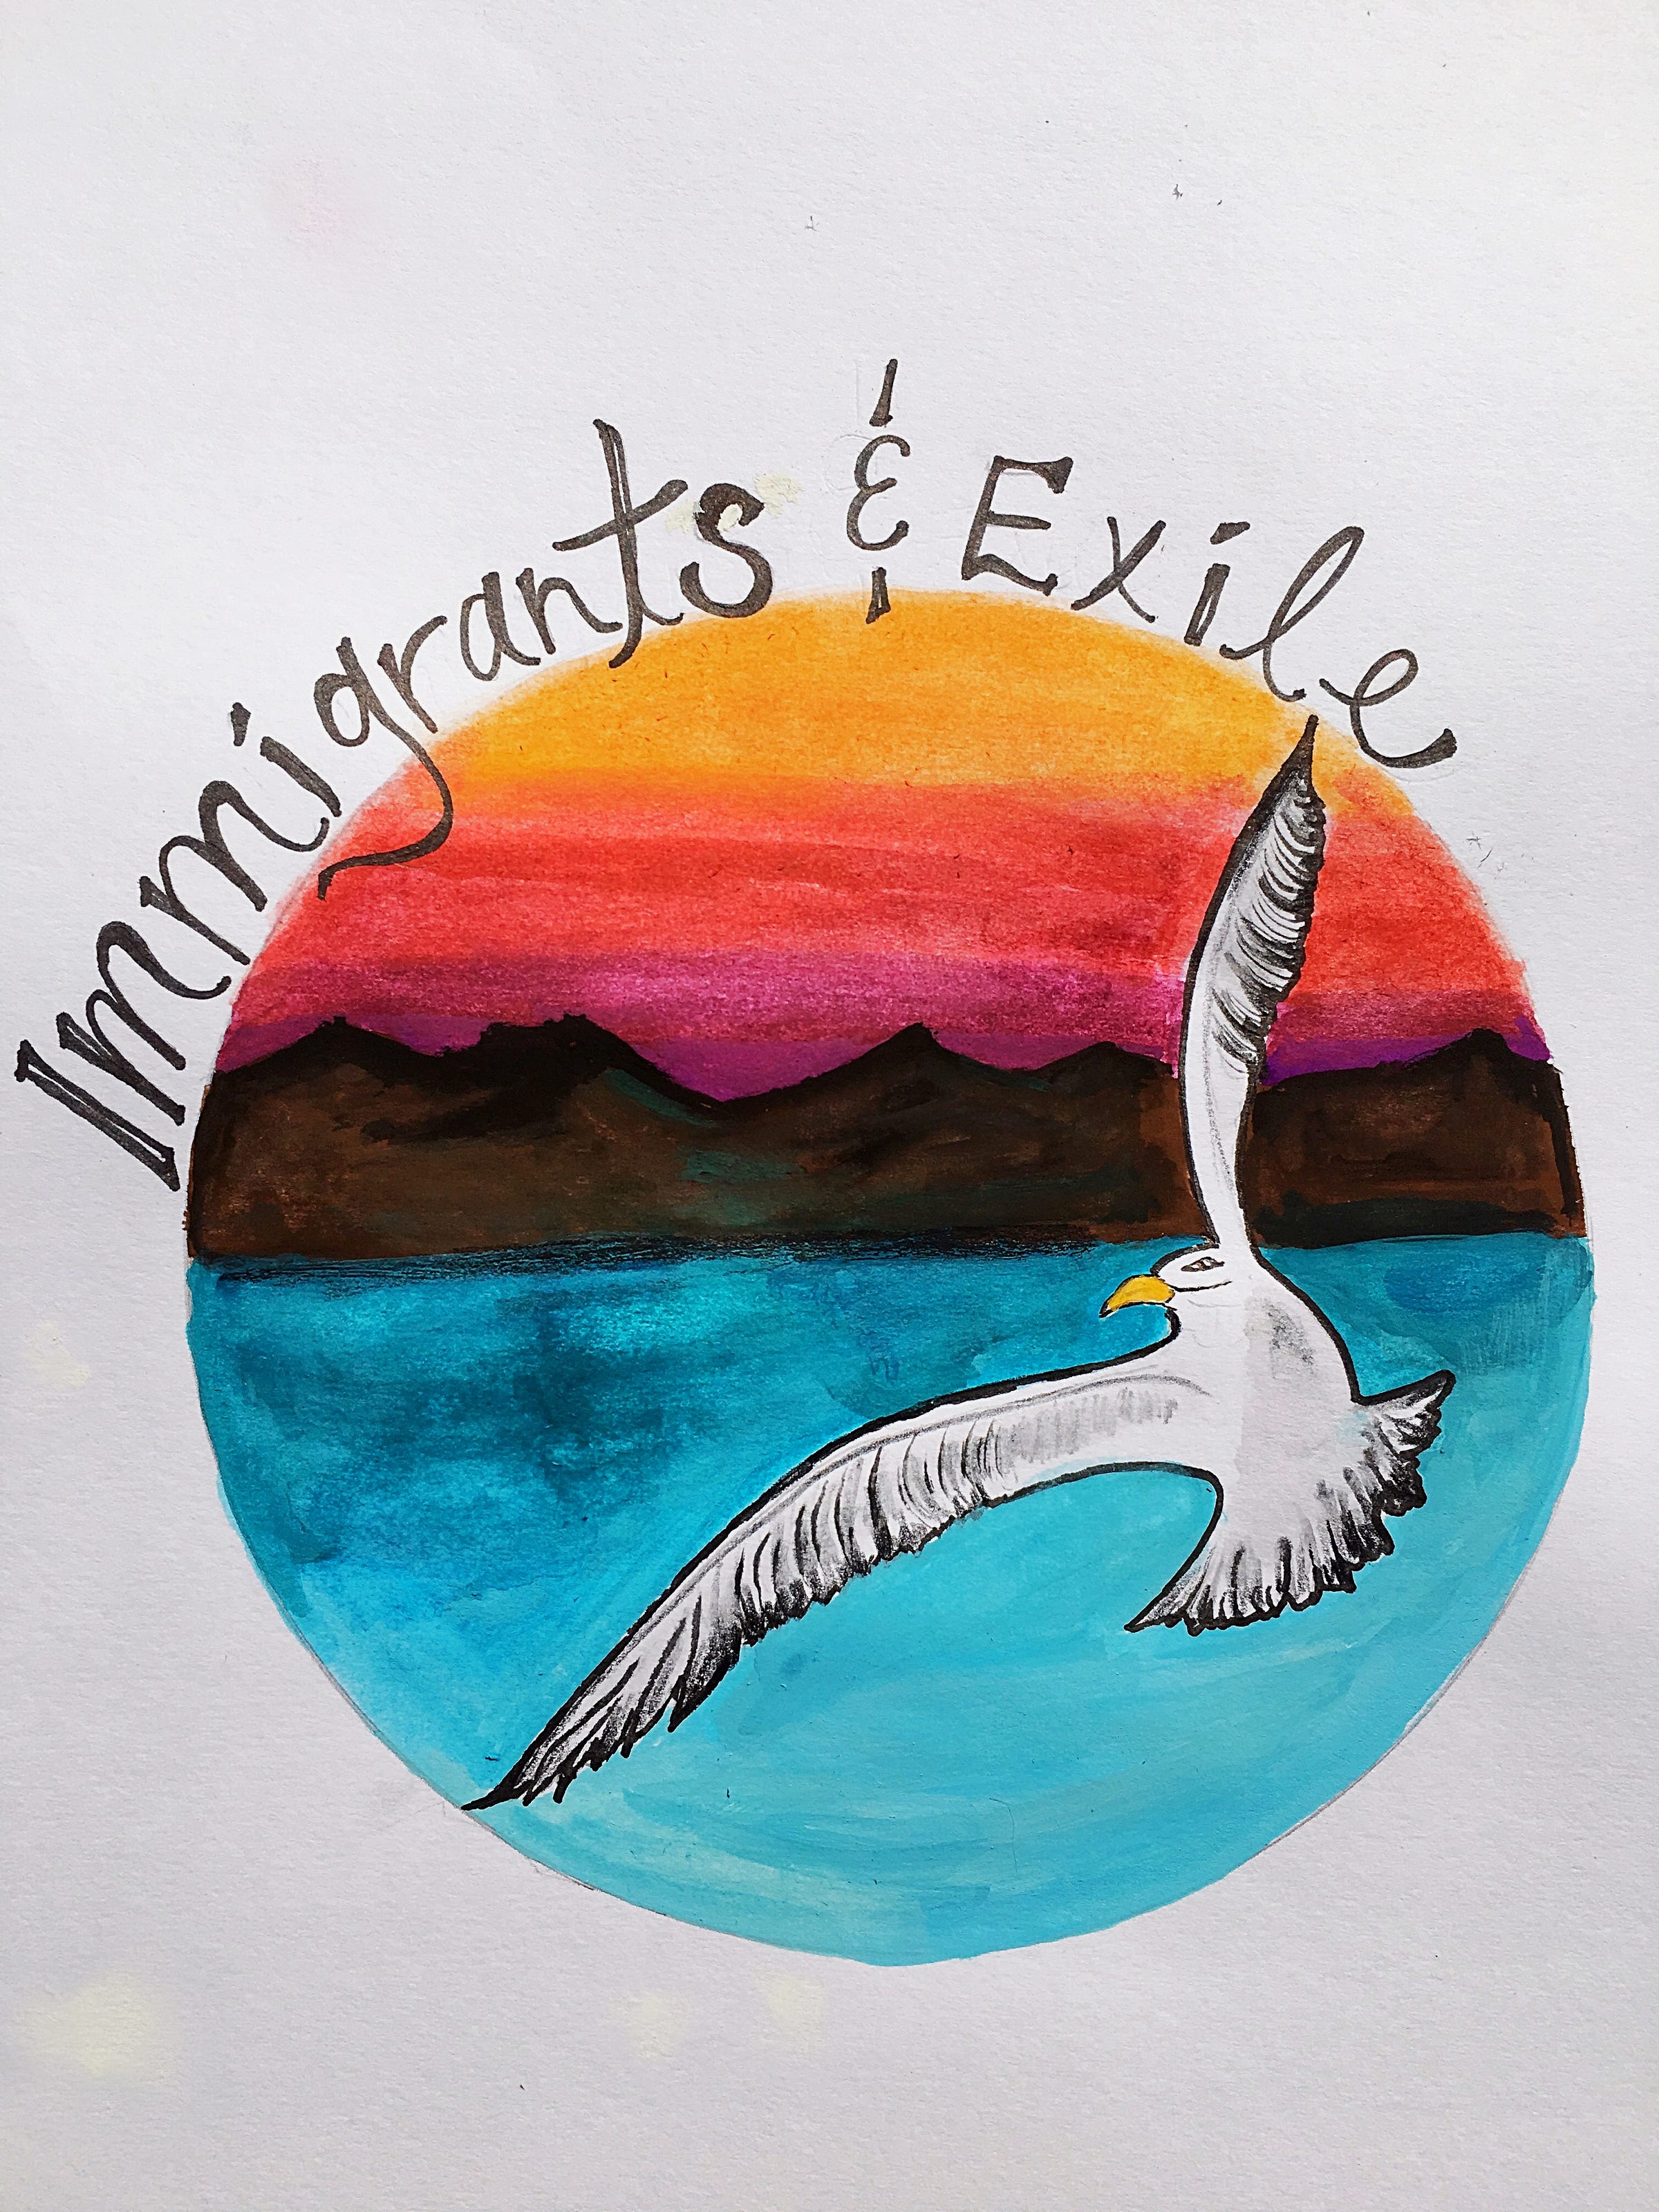 Immigrants & Exile